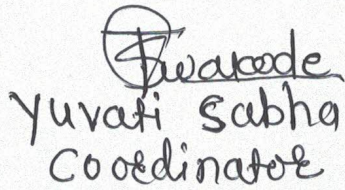 Yuvati Sabha
Coordinator